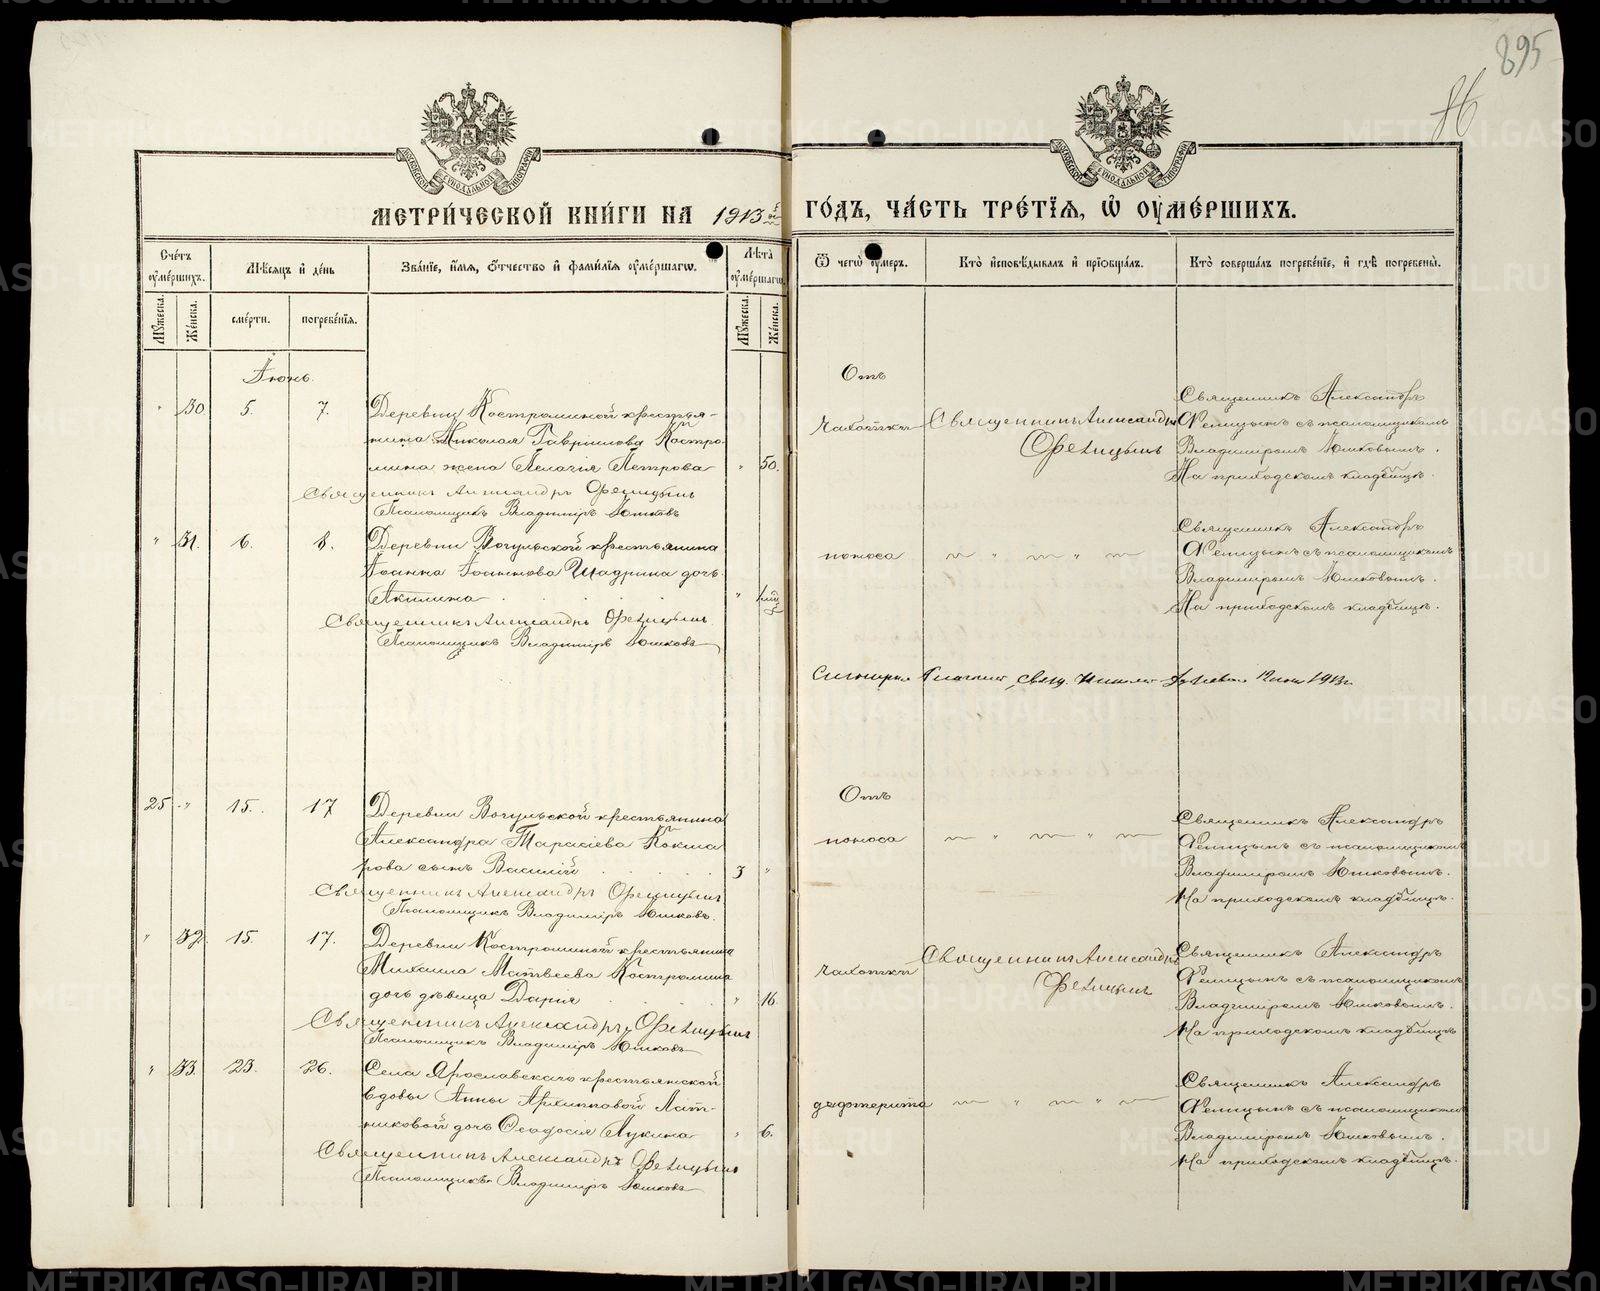 895
86
МЕТРИ́ЧЕСКОЙ КНИ́ГИ НА 1913 й ГО́ДЪ, ЧА́СТЬ ТРЕ́ТІѦ, Ѡ҆ ОУ҆МЕ́РШИХЪ.
Сче́тъ оу҆ме́ршихъ.
Мѣ́сѧцъ и҆ де́нь
Зва́нїе, и҆́мѧ, ѻ҆́тчество и҆ фами́лїѧ оу҆ме́ршагѡ.
Лѣ́та оу҆ме́ршагѡ.
Ѿ чегѡ̀ оу҆́меръ.
Кто̀ и҆сповѣ́дывалъ и҆ прїѡбща́лъ.
Кто̀ соверша́лъ погребе́нїе, и҆ гдѣ̀ погребены̀.
Мꙋ́жеска.
Же́нска.
сме́рти.
погребе́нїѧ.
Мꙋ́жеска.
Же́нска.
Іюнь.
" 30 5. 7. Деревни Костроминой крестья-
нина Николая Гаврилова Костро
мина жена Пелагія Петрова " 50.
Священникъ Александръ Ѳелицынъ
Псаломщикъ Владиміръ Юшковъ
Отъ
чахотки
Священникъ Александръ
Ѳелицынъ
Священникъ Александръ
Ѳелицынъ съ псаломщикомъ
Владиміромъ Юшковымъ.
На приходскомъ кладбищѣ.
" 31. 6. 8. Деревни Вогульской крестьянина
Іоанна Іоаннова Шадрина дочь
Акилина "
Священникъ Александръ Ѳелицынъ
Псаломщикъ Владиміръ Юшковъ
поноса
Священникъ Александръ
Ѳелицынъ съ псаломщикомъ
Владиміромъ Юшковымъ.
На приходскомъ кладбищѣ.
1913г.
25 " 15. 17 Деревни Вогульской крестьянина
Александра Тарасіева Кокша
рова сынъ Василій 3 "
Священникъ Александръ Ѳелицынъ
Псаломщикъ Владиміръ Юшковъ.
Отъ
поноса
Священникъ Александръ
Ѳелицынъ съ псаломщикомъ
Владиміромъ Юшковымъ.
На приходскомъ кладбищѣ.
" 32. 15. 17. Деревни Костроминой крестьянина
Михаила Матвеева Костромина
дочь дѣвица Дарія " 16.
Священникъ Александръ Ѳелицынъ
Псаломщикъ Владиміръ Юшковъ
чахотки
Священникъ Александръ
Ѳелицынъ
Священникъ Александръ
Ѳелицынъ съ псаломщикомъ
Владиміромъ Юшковымъ.
На приходскомъ кладбищѣ
" 33. 23. 26. Села Ярославскаго крестьянской
вдовы Анны Архипповой Лат-
никовой дочь Ѳеодосія Лукина " 6.
Священникъ Александръ Ѳелицынъ
Псаломщикъ Владиміръ Юшковъ
Священникъ Александръ
Ѳелицынъ съ псаломщикомъ
Владиміромъ Юшковымъ.
На приходскомъ кладбищѣ.
METRIKI.GASO-URAL.RU